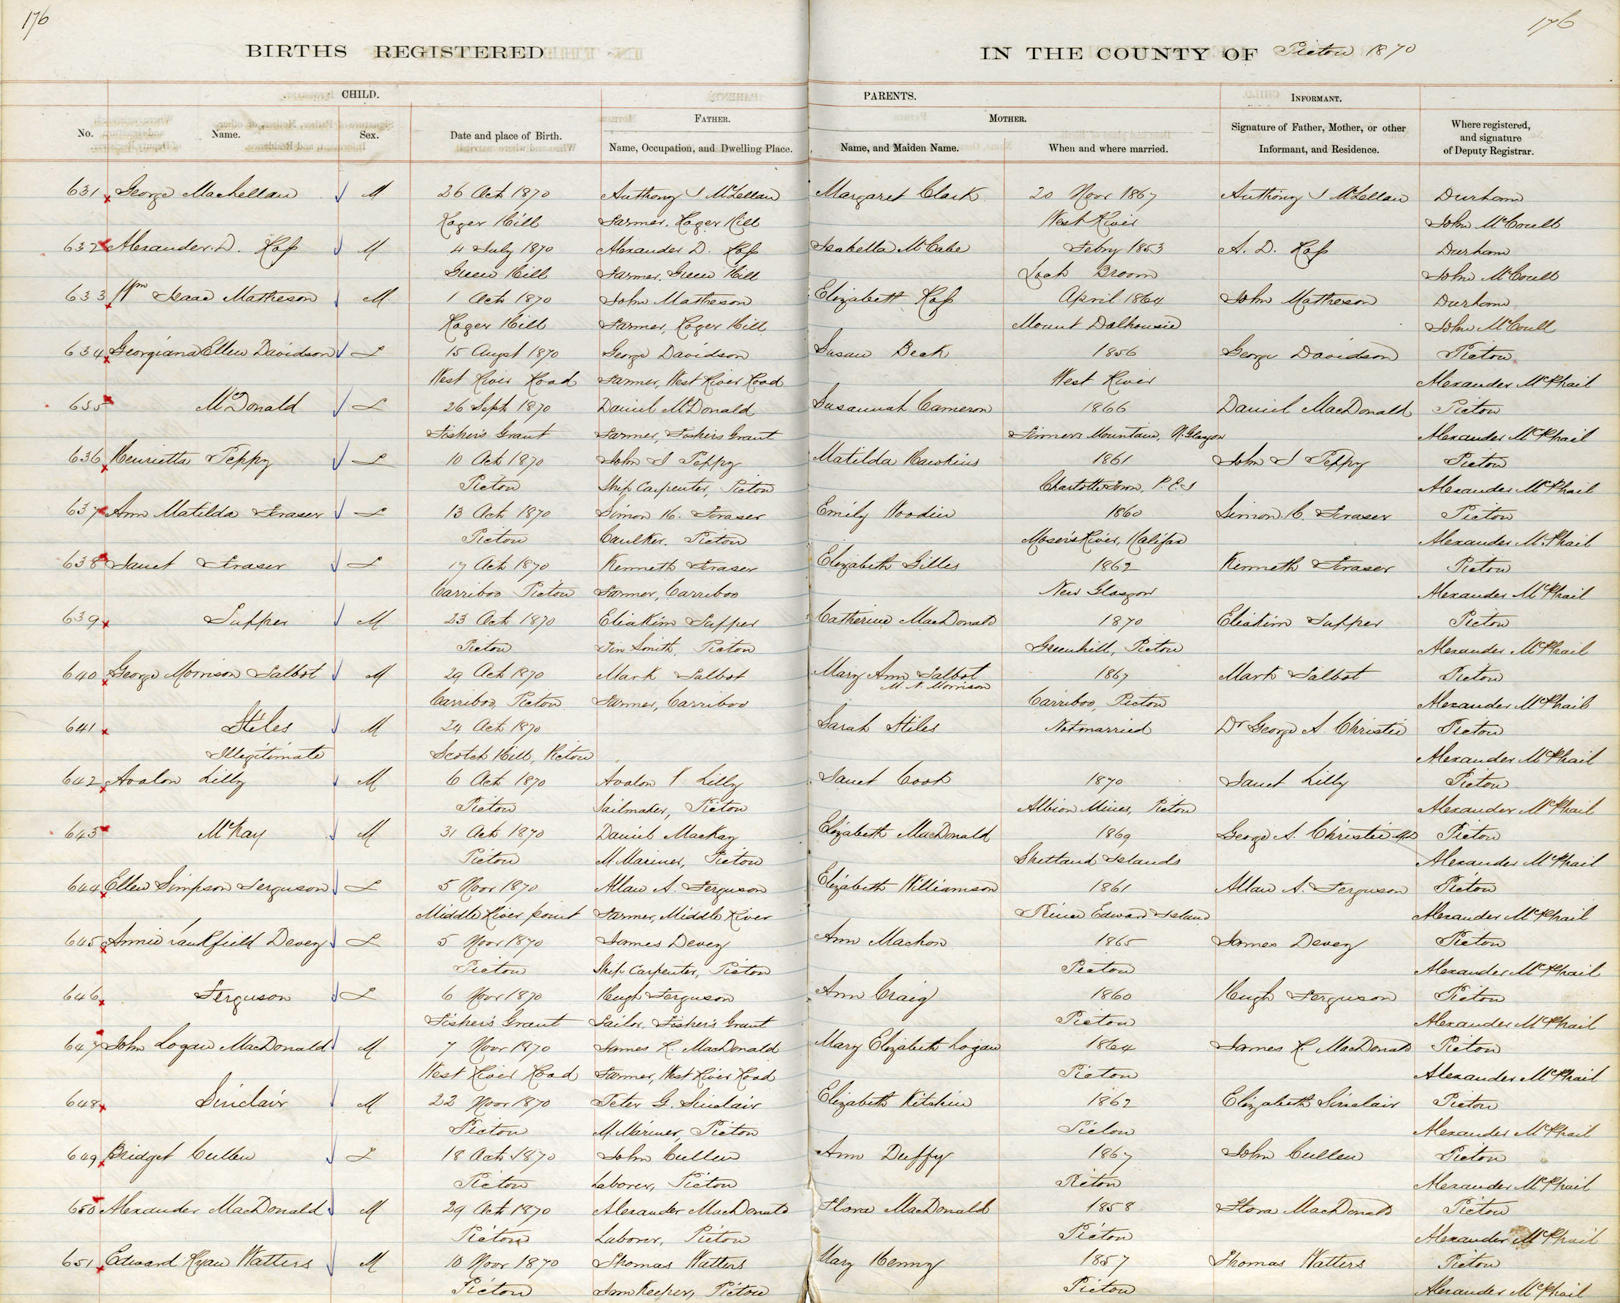 176
176
BIRTHS REGISTERED IN THE COUNTY OF Pictou 1870
CHILD. PARENTS. INFORMANT.
FATHER. MOTHER.
No. Name. Sex. Date and place of Birth. Name, Occupation, and Dwelling Place. Name, and Maiden Name. When and where married. Signature of Father, Mother, or other Informant, and Residence. Where registered, and signature of Deputy Registrar.
631 George MacLellan M 26 Oct 1870 Anthony J McLellan Margaret Clark 20 Novr 1867 Anthony J McLellan Durham
Roger Hill Farmer, Roger Hill West River John McCoull
632 Alexander D. Ross M 4 July 1870 Alexander D. Ross Isabella McCabe Febry 1853 A. D. Ross Durham
Green Hill Farmer, Green Hill Loch Broom John McCoull
633 Wm Isaac Matheson M 1 Oct 1870 John Matheson Elizabeth Ross April 1864 John Matheson Durham
Roger Hill Farmer, Roger Hill Mount Dalhousie John McCoull
634 Georgiana Ellen Davidson F 15 Augst 1870 George Davidson Susan Beck 1856 George Davidson Pictou
West River Road Farmer, West River Road West River Alexander McPhail
635 McDonald F 26 Sept 1870 Daniel McDonald Susannah Cameron 1866 Daniel MacDonald Pictou
Fisher's Grant Farmer, Fishers Grant Mountain, N. Glasgow Alexander McPhail
636 Henrietta Peppy F 10 Oct 1870 John J Peppy Matilda Hawkins 1861 John J Peppy Pictou
Pictou Ship Carpenter, Pictou Charlotte Town, P.E.I Alexander McPhail
637 Ann Matilda Fraser F 13 Oct 1870 Simon H. Fraser Emily Woodin 1860 Simon H. Fraser Pictou
Pictou Caulker, Pictou Moser's River, Halifax Alexander McPhail
638 Janet Fraser F 17 Oct 1870 Kenneth Fraser Elizabeth Gilles 1862 Kenneth Fraser Pictou
Carriboo Pictou Farmer, Carriboo New Glasgow Alexander McPhail
639 Tupper M 23 Oct 1870 Eliakim Tupper Catherine MacDonald 1870 Eliakim Tupper Pictou
Pictou Tin Smith, Pictou Greenhill, Pictou Alexander McPhail
640 George Morrison Talbot M 29 Oct 1870 Mark Talbot Mary Ann Talbot 1867 Mark Talbot Pictou
M. N. Morrison
Carriboo, Pictou Farmer, Carriboo Carriboo, Pictou Alexander McPhail
641 Stiles M 24 Oct 1870 Sarah Stiles Not married Dr George A Christie Pictou
Illegitimate Scotch Hill, Pictou Alexander McPhail
642 Avalon Lilly M 6 Oct 1870 Avalon T Lilly Janet Cook 1870 Janet Lilly Pictou
Pictou Sailmaker, Pictou Albion Mines, Pictou Alexander McPhail
643 McKay M 31 Oct 1870 Daniel MacKay Elizabeth MacDonald 1869 George A. Christie MD Pictou
Pictou M. Mariner, Pictou Shetland Islands Alexander McPhail
644 Ellen Simpson Ferguson F 5 Novr 1870 Allan A. Ferguson Elizabeth Williamson 1861 Allan A. Ferguson Pictou
Middle River point Farmer, Middle River Prince Edward Island Alexander McPhail
645 Annie Devey F 5 Novr 1870 James Devey Ann Machon 1865 James Devey Pictou
Pictou Ship Carpenter, Pictou Pictou Alexander McPhail
646 Ferguson F 6 Novr 1870 Hugh Ferguson Ann Craig 1860 Hugh Ferguson Pictou
Fisher's Grant Tailor, Fisher's Grant Pictou Alexander McPhail
647 John Logan MacDonald M 7 Novr 1870 James R. MacDonald Mary Elizabeth Logan 1864 James R. MacDonald Pictou
West River Road Farmer, West River Road Pictou Alexander McPhail
648 Sinclair M 22 Novr 1870 Peter G. Sinclair Elizabeth Kitchin 1862 Elizabeth Sinclair Pictou
Pictou M. Mariner, Pictou Pictou Alexander McPhail
649 Bridget Cullen F 18 Oct 1870 John Cullen Ann Duffy 1867 John Cullen Pictou
Pictou Laborer, Pictou Pictou Alexander McPhail
650 Alexander MacDonald M 29 Oct 1870 Alexander MacDonald Flora MacDonald 1858 Flora MacDonald Pictou
Pictou Laborer, Pictou Pictou Alexander McPhail
651 Edward Ryan Watters M 10 Novr 1870 Thomas Watters Mary Kenny 1857 Thomas Watters Pictou
Pictou Inn Keeper, Pictou Pictou Alexander McPhail